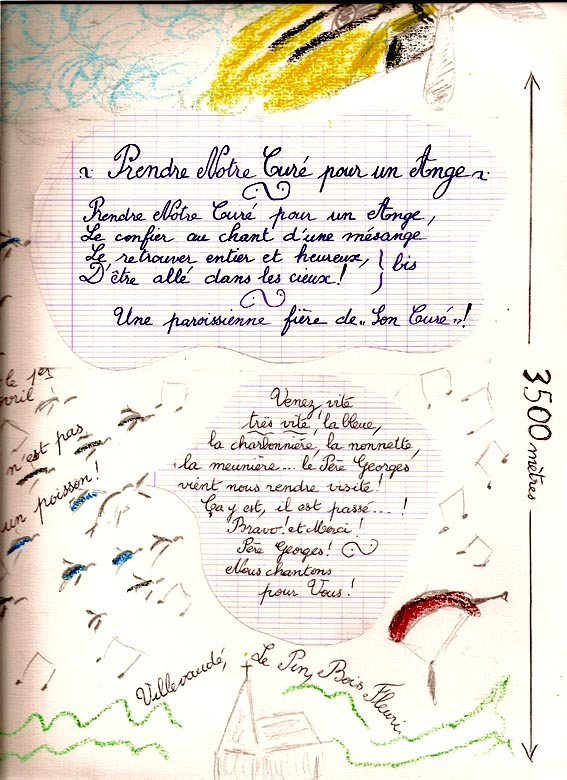 ~ Prendre Notre Curé pour un Ange ~
Prendre Notre Curé pour un Ange,
Le confier au chant d'une mésange
Le retrouver entier et heureux,
D'être allé dans les cieux!
bis
Une paroissienne fière de „Son Curé"!
3500 mètres
le 1er
avril
n'est pas
un poisson!
Venez vite
très vite, la bleue,
la charbonnière, la nonnette,
la meunière... le Père Georges
vient nous rendre visite!
Ça y est, il est passé... !
Bravo! et Merci!
Père Georges!
Nous chantons
pour Vous!
Villevaudé, Le Pin, Bois Fleuri.